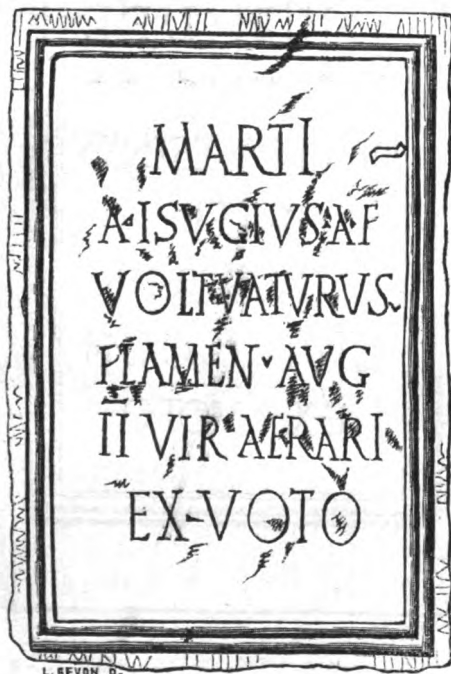 MARTI
A·ISVGIVS·A·F
VOLT·VATVRVS
FLAMEN·AVG
II VIR·AERARI
EX·VOTO
L. REVON D.